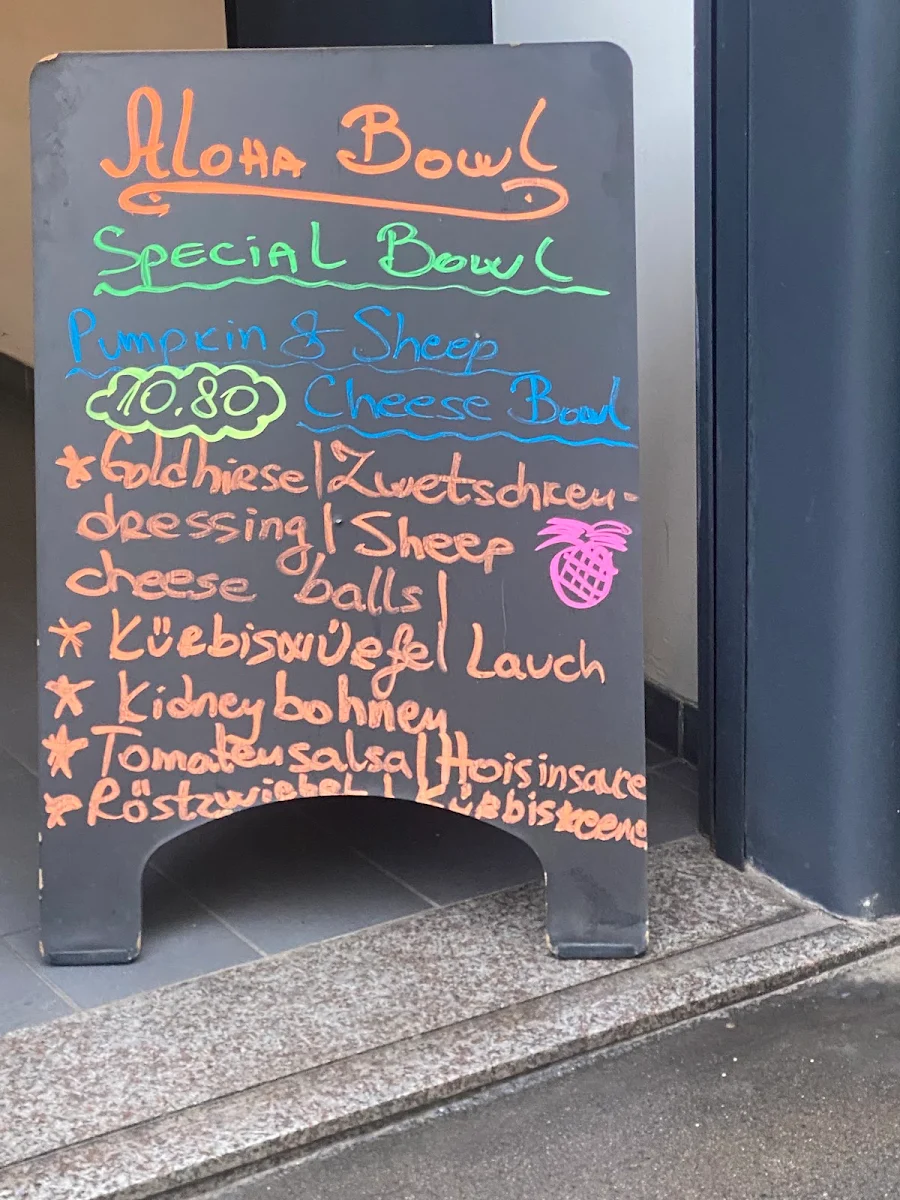 Aloha Bowl
Special Bowl
Pumpkin & Sheep
10.80 Cheese Bowl
* Goldhirse | Zwetschken-
dressing | Sheep
cheese balls |
* Kürbiswürfel | Lauch
* Kidneybohnen
* Tomatensalsa | Hoisinsauce
* Röstzwiebel | Kürbiskerne